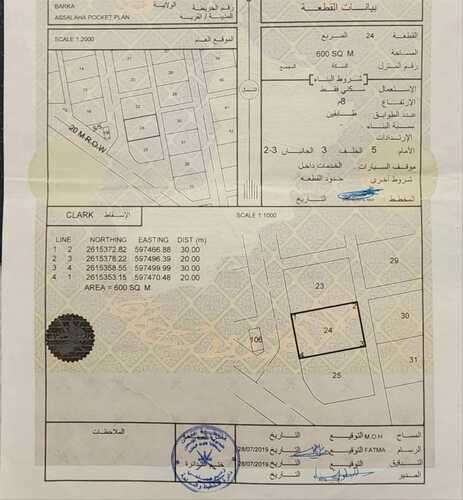 BARKA
الولاية
رقم الخريطة
بيانات القطعة
ASSALAHA POCKET PLAN
المدينة / القرية
SCALE 1:2000
الموقع العام
القطعة 24 المربع
المساحة 600 SQ. M.
رقم المنزل السكة المجمع
شروط البناء
الإستعمال سكني فقط
الإرتفاع 8م
عدد الطوابق طابقين
نسبة البناء
الإرتدادات
الأمام 5 الخلف 3 الجانبان 3-2
موقف السيارات الخدمات داخل
شروط أخرى حدود القطعة
المخطط التاريخ
الشمال
20 M.R.O.W
24
CLARK
الإسقاط
SCALE 1:1000
LINE NORTHING EASTING DIST (m)
1 2 2615372.82 597466.88 30.00
2 3 2615378.22 597496.39 20.00
3 4 2615358.55 597499.99 30.00
4 1 2615353.15 597470.48 20.00
AREA = 600 SQ. M.
29
23
30
1
2
24
106
4
3
31
25
الملاحظات
المساح M.O.H التوقيع التاريخ
الرسام FATMA التوقيع التاريخ 28/07/2019
التوقيع التاريخ 28/07/2019
ختم الدائرة
المدير التوقيع التاريخ